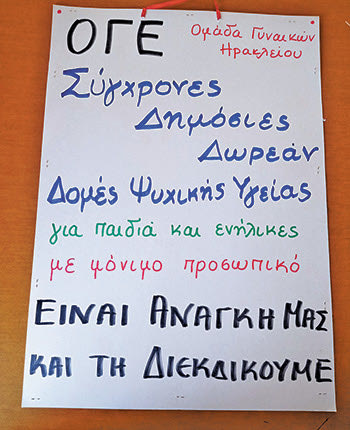 ΟΓΕ Ομάδα Γυναικών
Ηρακλείου
Σύγχρονες
Δημόσιες
Δωρεάν
Δομές Ψυχικής Υγείας
για παιδιά και ενήλικες
με μόνιμο προσωπικό
ΕΙΝΑΙ ΑΝΑΓΚΗ ΜΑΣ
ΚΑΙ ΤΗ ΔΙΕΚΔΙΚΟΥΜΕ